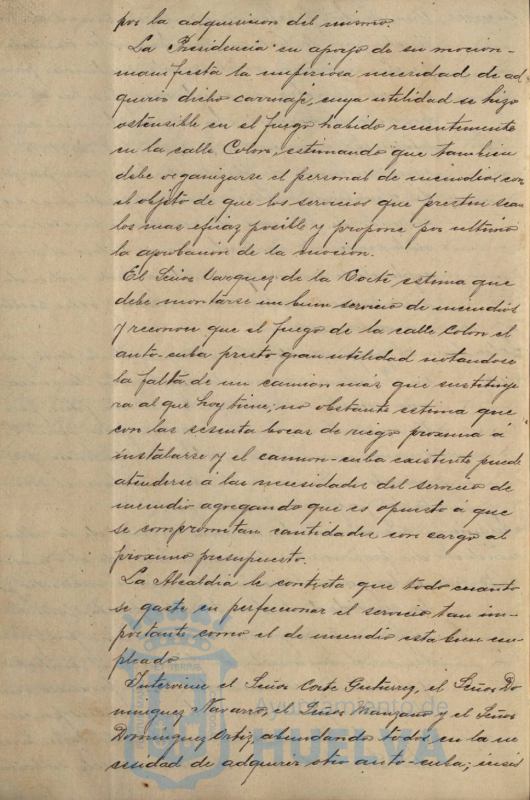 por la adquisicion del mismo.
La Presidencia en apoyo de su mocion
manifiesta la imperiosa necesidad de ad
querir dicho carruaje, cuya utilidad se hizo
ostensible en el fuego habido recientemente
en la calle Colon, estimando que tambien
debe organizarse el personal de incendios con
el objeto de que los servicios que presten sean
los mas eficaz posible y propone por ultimo
la aprobacion de la mocion.
El Señor Vazquez de la Corte estima que
debe montarse un buen servicio de incendios
y reconoce que el fuego de la calle Colon el
auto-cuba presto gran utilidad notandose
la falta de un camion más que sustituye
ra al que hoy tiene; no obstante estima que
con las sesenta bocas de riego proxima á
instalarse y el camion-cuba existente puede
atenderse á las necesidades del servicio de
incendio agregando que es opuesto á que
se comprometan cantidades con cargo al
proximo presupuesto.
La Alcaldia le contesta que todo cuanto
se gaste en perfeccionar el servicio tan im-
portante como el de incendio esta bien em-
pleado
Interviene el Señor Corte Gutierrez, el Señor Do
minguez Navarro, el Señor Manzano y el Señor
Dominguez Ortiz, abundando todos en la ne
cesidad de adquirir otro auto-cuba;
Ayuntamiento de
HUELVA